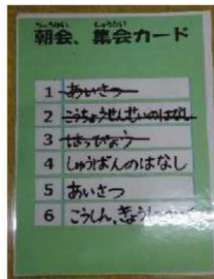 ちょうかい しゅうかい
朝会、集会カード
1 あいさつ
2 こうちょうせんせいのはなし
3 はっぴょう
4 しゅうばんのはなし
5 あいさつ
6 こうしん、